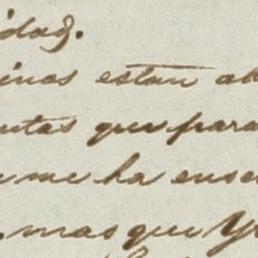 idad.
inas estan ab
utas que para
me ha ense
mas que Y